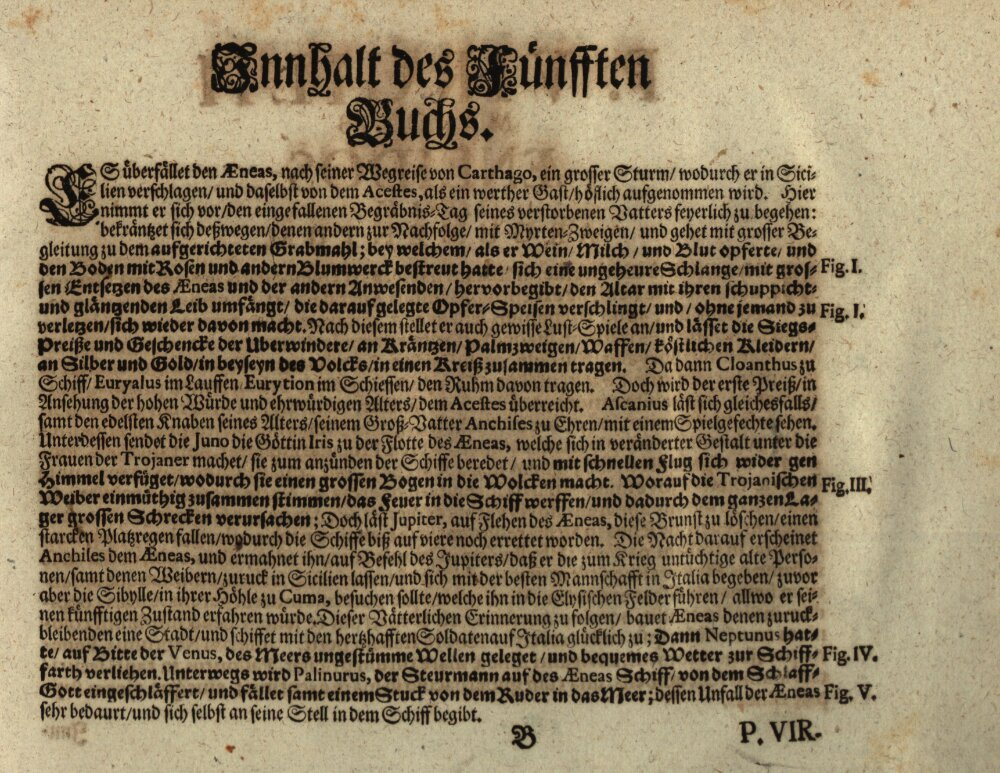 Innhalt des Fünfften
Buchs.
ES überfället den Æneas, nach seiner Wegreise von Carthago, ein grosser Sturm/ wodurch er in Sici-
lien verschlagen/ und daselbst von dem Acestes, als ein werther Gast/ höflich aufgenommen wird. Hier
nimmt er sich vor/ den eingefallenen Begräbnis-Tag seines verstorbenen Vatters feyerlich zu begehen:
bekräntzet sich deßwegen/ denen andern zur Nachfolge/ mit Myrten-Zweigen/ und gehet mit grosser Be-
gleitung zu dem aufgerichteten Grabmahl; bey welchem/ als er Wein/ Milch/ und Blut opferte/ und
den Boden mit Rosen und andern Blumwerck bestreut hatte/ sich eine ungeheure Schlange/ mit gros- Fig. I.
sen Entsetzen des Æneas und der andern Anwesenden/ hervorbegibt/ den Altar mit ihren schuppicht-
und gläntzenden Leib umfängt/ die darauf gelegte Opfer-Speisen verschlingt/ und/ ohne jemand zu Fig. I.
verletzen/ sich wieder davon macht. Nach diesem stellet er auch gewisse Lust-Spiele an/ und lässet die Siegs-
Preiße und Geschencke der Uberwindere/ an Kräntzen/ Palmzweigen/ Waffen/ köstlichen Kleidern/
an Silber und Gold/ in beyseyn des Volcks/ in einen Kreiß zusammen tragen. Da dann Cloanthus zu
Schiff/ Euryalus im Lauffen/ Eurytion im Schiessen/ den Ruhm davon tragen. Doch wird der erste Preiß/ in
Ansehung der hohen Würde und ehrwürdigen Alters/ dem Acestes überreicht. Ascanius läst sich gleichesfalls/
samt den edelsten Knaben seines Alters/ seinem Groß-Vatter Anchises zu Ehren/ mit einem Spielgefechte sehen.
Unterdessen sendet die Juno die Göttin Iris zu der Flotte des Æneas, welche sich in veränderter Gestalt unter die
Frauen der Trojaner machet/ sie zum anzünden der Schiffe beredet/ und mit schnellen Flug sich wider gen
Himmel verfüget/ wodurch sie einen grossen Bogen in die Wolcken macht. Worauf die Trojanischen Fig. III.
Weiber einmüthig zusammen stimmen/ das Feuer in die Schiff werffen/ und dadurch dem gantzen La-
ger grossen Schrecken verursachen; Doch läst Jupiter, auf Flehen des Æneas, diese Brunst zu löschen/ einen
starcken Platzregen fallen/ wodurch die Schiffe biß auf viere noch errettet worden. Die Nacht darauf erscheinet
Anchises dem Æneas, und ermahnet ihn/ auf Befehl des Jupiters/ daß er die zum Krieg untüchtige alte Perso-
nen/ samt denen Weibern/ zuruck in Sicilien lassen/ und sich mit der besten Mannschafft in Italia begeben/ zuvor
aber die Sibylle/ in ihrer Höhle zu Cuma, besuchen sollte/ welche ihn in die Elysischen Felder führen/ allwo er sei-
nen künfftigen Zustand erfahren würde. Dieser Vätterlichen Erinnerung zu folgen/ bauet Æneas denen zuruck-
bleibenden eine Stadt/ und schiffet mit den hertzhafften Soldaten auf Italia glücklich zu; Dann Neptunus hat-
te/ auf Bitte der Venus, des Meers ungestümme Wellen geleget/ und bequemes Wetter zur Schiff- Fig. IV.
farth verliehen. Unterwegs wird Palinurus, der Steurmann auf des Æneas Schiff/ von dem Schlaff-
Gott eingeschläffert/ und fället samt einem Stuck von dem Ruder in das Meer; dessen Unfall der Æneas Fig. V.
sehr bedaurt/ und sich selbst an seine Stell in dem Schiff begibt.
B P. VIR-